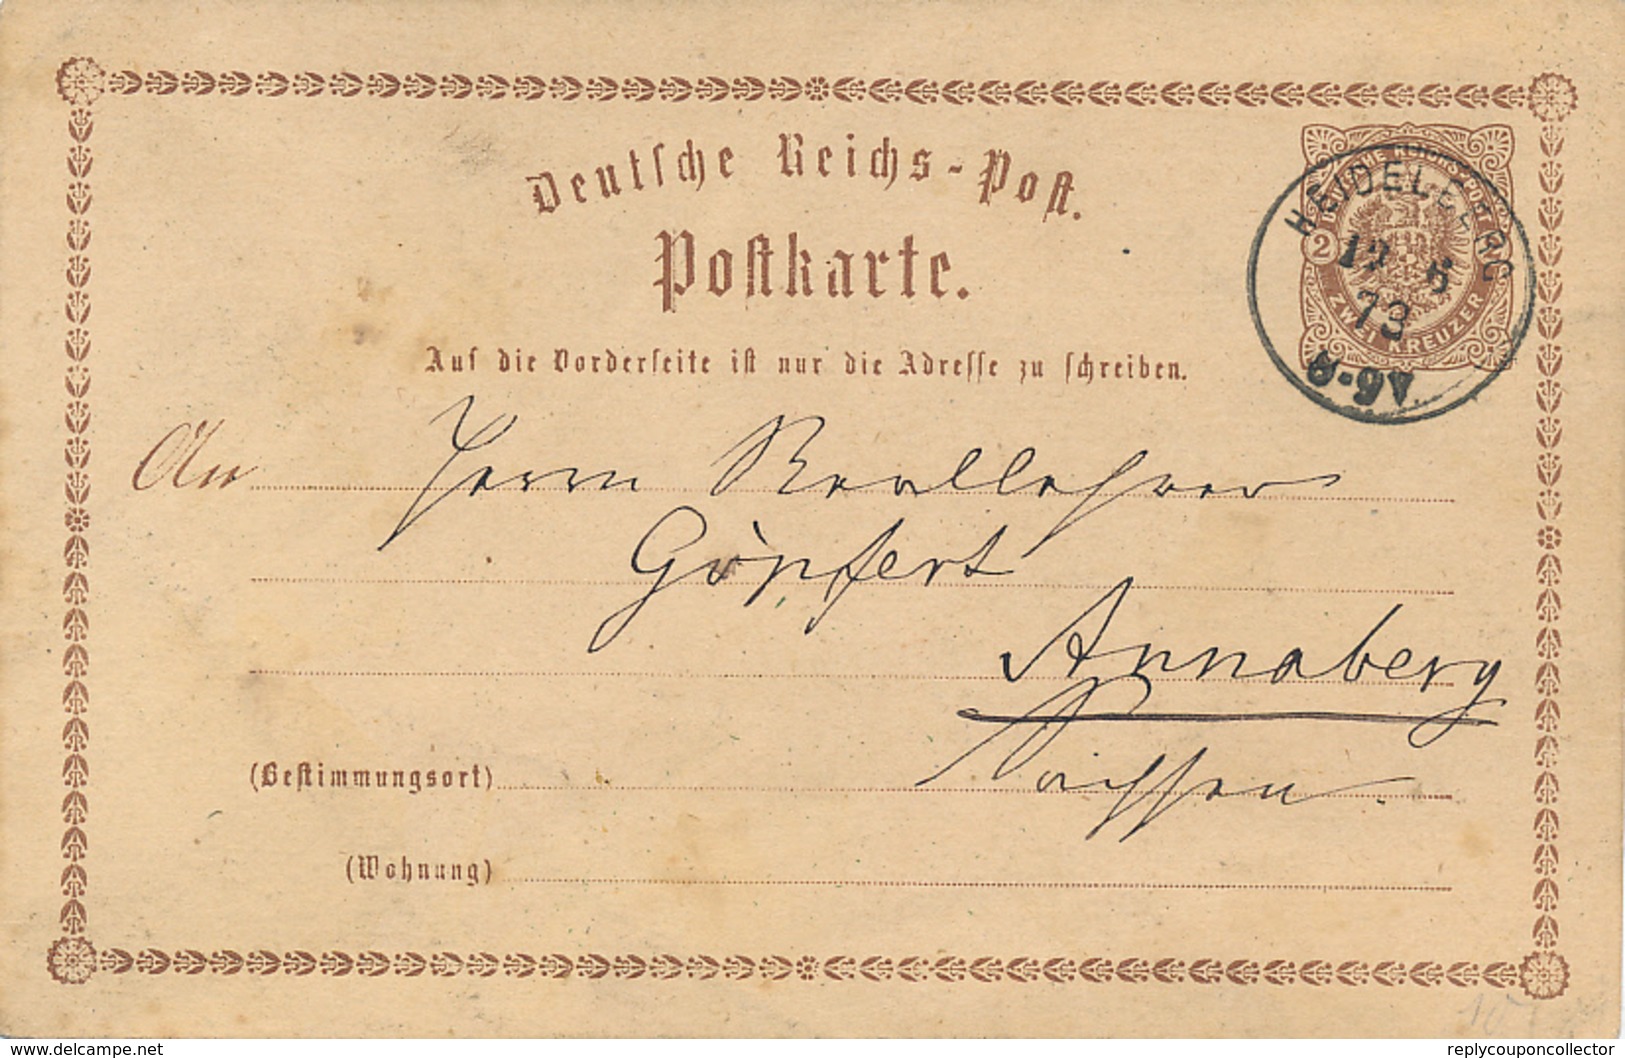 Deutsche Reichs-Post.
Postkarte.
DEUTSCHE REICHS-POST
2
ZWEI KREUZER
HEIDELBERG
12 6
73
8-9V.
Auf die Vorderseite ist nur die Adresse zu schreiben.
An Herrn Reallehrer
Göpfert
Annaberg
Sachsen.
(Bestimmungsort)
(Wohnung)
www.delcampe.net
replycouponcollector